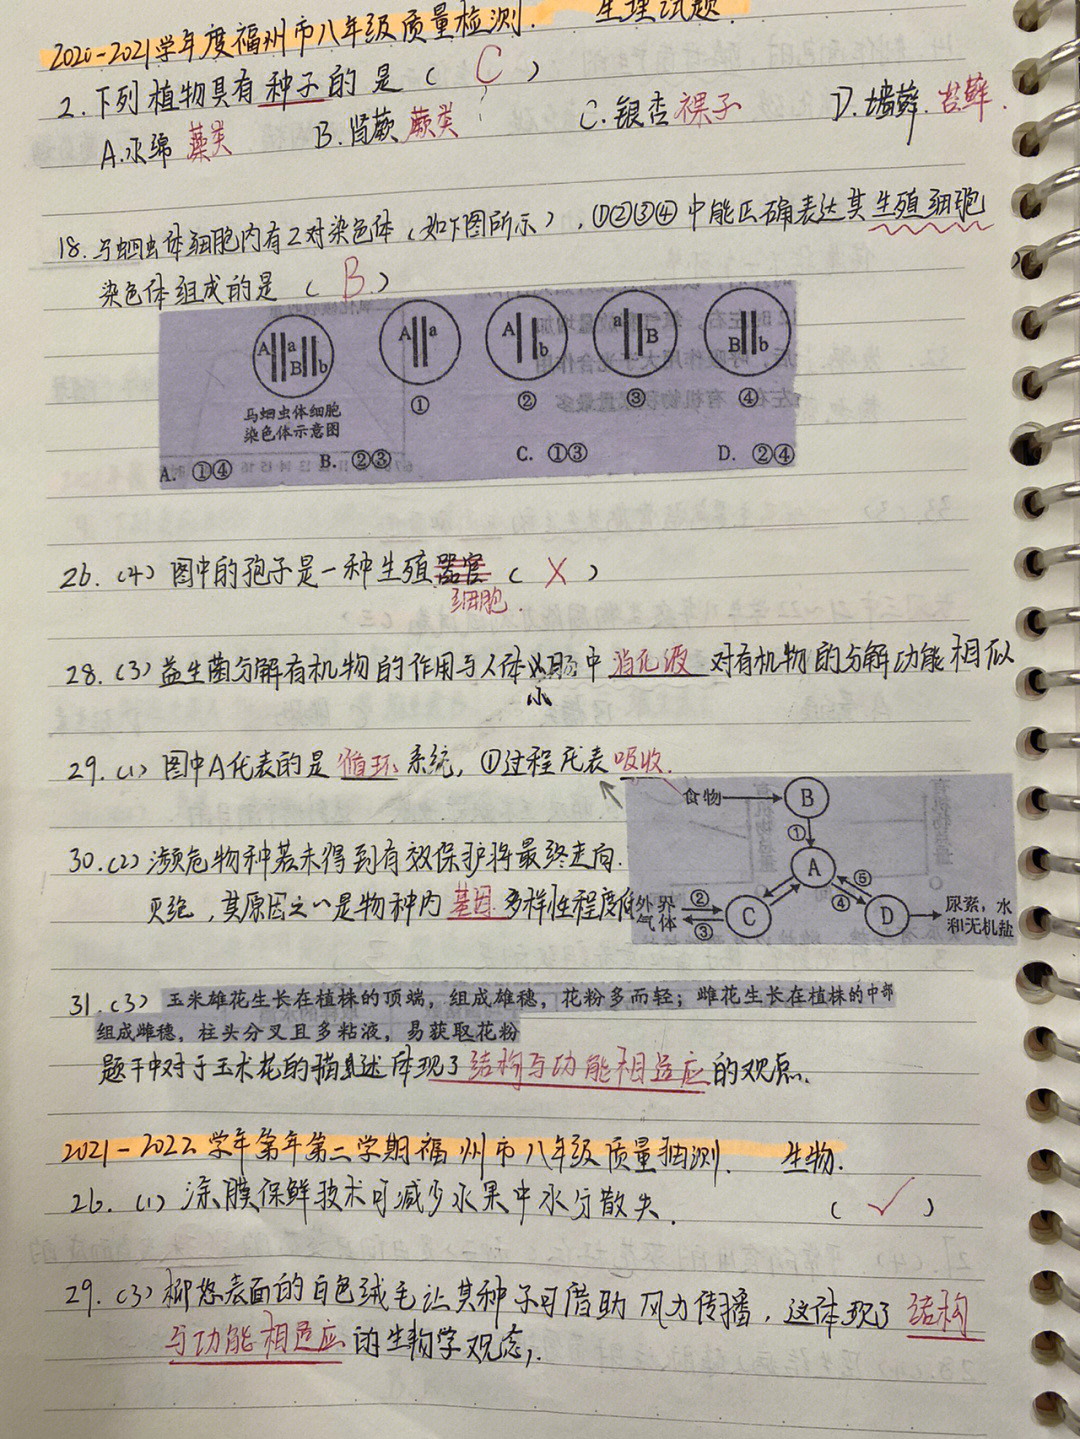 2020-2021学年度福州市八年级质量检测. 生理试题.
2.下列植物具有种子的是（ C ）
A.水绵 藻类 B.肾蕨 蕨类 C.银杏 裸子 D.墙藓 苔藓.
18.马蛔虫体细胞内有2对染色体（如下图所示），①②③④中能正确表达其生殖细胞
染色体组成的是（ B ）
A a B b A a A b a B B b
马蛔虫体细胞
染色体示意图
① ② ③ ④
A. ①④ B. ②③ C. ①③ D. ②④
26.(4) 图中的孢子是一种生殖器官（ X ）
细胞.
28.(3)益生菌分解有机物的作用与人体小肠中 消化液 对有机物的分解功能相似
29.(1) 图中A代表的是 循环 系统, ①过程代表 吸收.
食物 B
①
A
⑤
④
外界 ② C D 尿素，水
气体 ③ 和无机盐
30.(2)濒危物种若未得到有效保护将最终走向.
灭绝，其原因之一是物种内 基因 多样性程度低
31.(3) 玉米雄花生长在植株的顶端，组成雄穗，花粉多而轻；雌花生长在植株的中部
组成雌穗，柱头分叉且多粘液，易获取花粉
题干中对于玉米花的描述体现了结构与功能相适应的观点.
2021-2022学年第年第二学期福州市八年级质量抽测. 生物.
26.(1) 涂膜保鲜技术可减少水果中水分散失. （ ✓ ）
29.(3)柳絮表面的白色绒毛让其种子可借助风力传播，这体现了 结构
与功能相适应的生物学观念,.